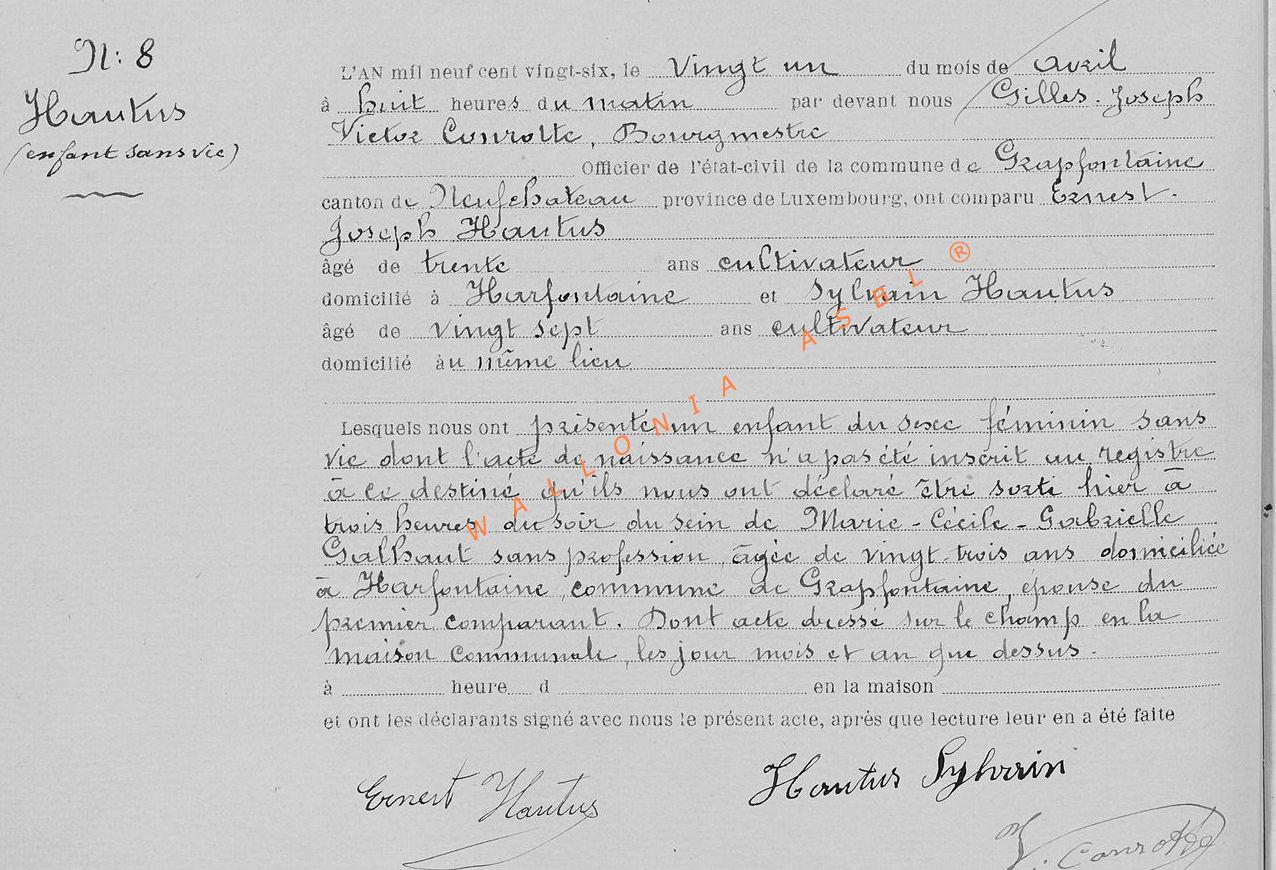 N: 8
Hautus
(enfant sans vie)
L'AN mil neuf cent vingt-six, le vingt un du mois de avril
à huit heures du matin par devant nous Gilles-Joseph
Victor Conrotte, Bourgmestre
Officier de l'état-civil de la commune de Grapfontaine
canton de Neufchateau province de Luxembourg, ont comparu Ernest-
Joseph Hautus
âgé de trente ans cultivateur
domicilié à Harfontaine et Sylvain Hautus
âgé de vingt sept ans cultivateur
domicilié au même lieu
Lesquels nous ont présenté un enfant du sexe féminin sans
vie dont l'acte de naissance n'a pas été inscrit au registre
à ce destiné qu'ils nous ont déclaré être sorti hier à
trois heures du soir du sein de Marie-Cécile-Gabrielle
Galhaut sans profession, agée de vingt-trois ans domiciliée
à Harfontaine, commune de Grapfontaine, épouse du
premier comparant. Dont acte dressé sur le champ en la
maison communale, les jour mois et an que dessus.
à heure d en la maison
et ont les déclarants signé avec nous le présent acte, après que lecture leur en a été faite
Ernest Hautus
Hautus Sylvain
V. Conrotte
WALLONIA ASBL ®